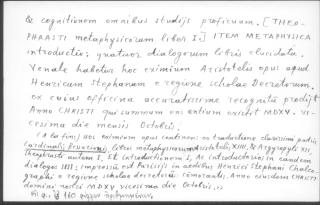 & cognitionem omnibus studijs proficuum. [THEO-
PHRASTI metaphysicorum liber I.] ITEM METAPHYSICA
introductio: quatuor dialogorum libris elucidata.
Venale habetur hoc eximium Aristotelis opus apud
Henricum Stephanum e regione scholae Decretorum.
ex cuius officina accuratissime recognitum prodijt
Anno CHRISTI qui summum ens entium existit MDXV. VI-
cesima die mensis Octobris.
(A la fin:) Hoc eximium opus continens: ex traductione clarissimi patris
Cardinalis Bessarionis, libros metaphysicorum Aristotelis XIIII, & Argyropyli XII,
Theophrasti autem I, Et Introductionem I, Ac Introductorios in eandem
dialogos IIII: impressū est Parisijs in aedibus Henrici Stephani Chalco-
graphi e regione scholae decretorū cōmorantis, Anno eiusdem CHRISTI
domini nostri MDXV vicesima die Octobris.